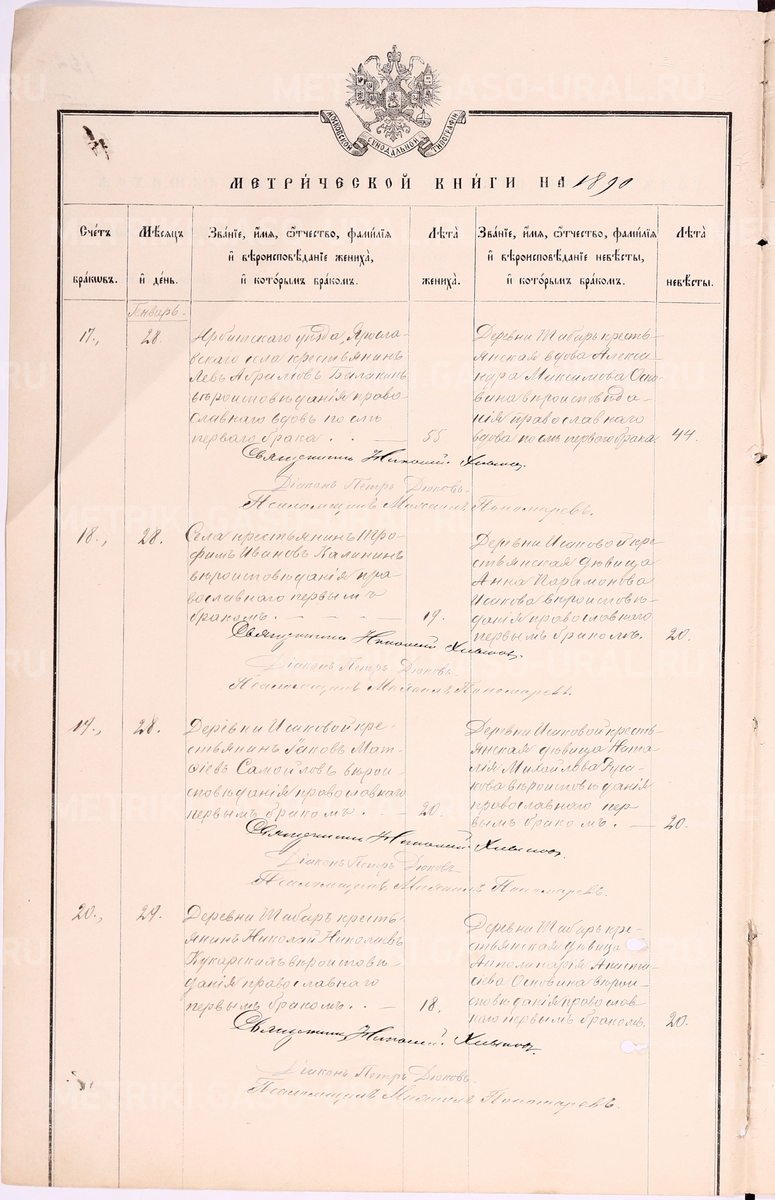 МОСКОВСКОЙ СѴНОДАЛЬНОЙ ТИПОГРАФІИ
МЕТРИ́ЧЕСКОЙ КНИ́ГИ НА 1890
Сче́тъ бра́кѡвъ.
Мѣ́сяцъ и҆ де́нь.
Зва́нїе, и҆́мѧ, ѻ҆́тчество, фами́лїѧ и҆ вѣроисповѣ́данїе жениха̀, и҆ кото́рымъ бра́комъ.
Лѣ́та жениха̀.
Зва́нїе, и҆́мѧ, ѻ҆́тчество, фами́лїѧ и҆ вѣроисповѣ́данїе невѣ́сты, и҆ кото́рымъ бра́комъ.
Лѣ́та невѣ́сты.
Январь.
17., 28.
Ирбитскаго уѣзда, Яросла-
вскаго села крестьянинъ
Левъ Абрамовъ Балакинъ
вѣроисповѣданія право
славнаго вдовъ послѣ
перваго брака . . — 55
Деревни Шабаръ кресть-
янская вдова Алексан-
дра Максимова Осно
вина вѣроисповѣда-
нія православнаго
вдова послѣ перваго брака 44.
Священникъ Николай
Діаконъ Петръ Дюковъ.
Псаломщикъ Михаилъ Пономаревъ.
18., 28.
Села крестьянинъ Тро-
фимъ Ивановъ Калининъ
вѣроисповѣданія пра-
вославнаго первымъ
бракомъ. — — — 19.
Деревни Исаковой кре-
стьянская дѣвица
Анна Парамонова
Исакова вѣроисповѣ-
данія православнаго
первымъ бракомъ. 20.
Священникъ Николай
Діаконъ Петръ Дюковъ.
Псаломщикъ Михаилъ Пономаревъ.
19., 28.
Деревни Исаковой кре-
стьянинъ Іаковъ Мат-
ѳіевъ Самойловъ вѣрои-
сповѣданія православнаго
первымъ бракомъ. . — 20.
Деревни Исаковой кресть-
янская дѣвица Ната
лія Михайлова Руса-
кова вѣроисповѣданія
православнаго пер
вымъ бракомъ. — 20.
Священникъ Николай
Діаконъ Петръ Дюковъ
Псаломщикъ Михаилъ Пономаревъ.
20., 29.
Деревни Шабаръ кресть-
янинъ Николай Николаевъ
Кукарскихъ вѣроисповѣ-
данія православнаго
первымъ бракомъ. . — 18.
Деревни Шабаръ кре-
стьянская дѣвица
Апполинарія Анаста-
сіева Основина вѣрои-
сповѣданія православ-
наго первымъ бракомъ. 20.
Священникъ Николай
Діаконъ Петръ Дюковъ.
Псаломщикъ Михаилъ Пономаревъ.
METRIKI.GASO-URAL.RU